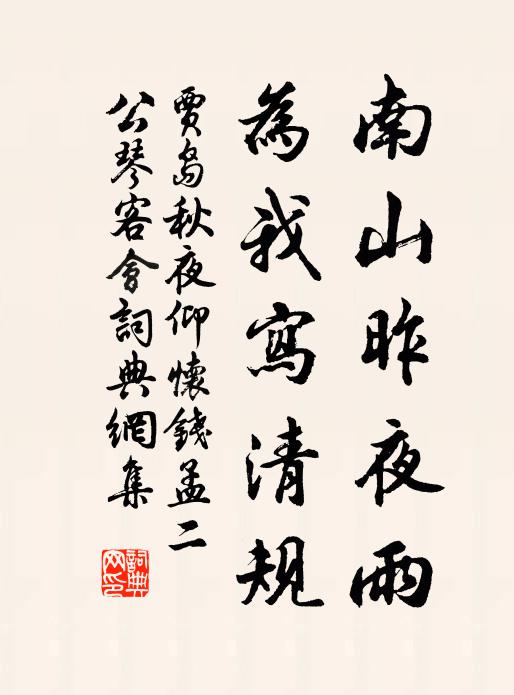 南山昨夜雨
為我寫清規
賈島秋夜仰懷錢孟二
公琴客會詞典網集
詞典網印